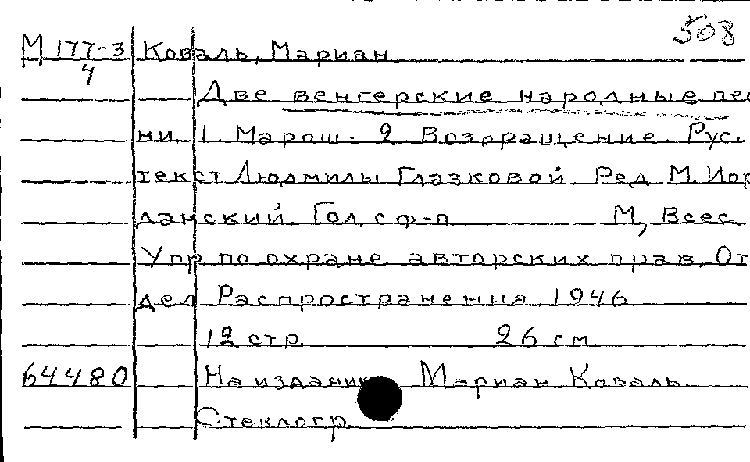 508
М 177-3 Коваль, Мариан
4
Две венгерские народные пес
ни. 1. Марош. 2 Возвращение. Рус.
текст Людмилы Глазковой. Ред. М. Иор
данский. Гол. с ф-п М, Всес.
Упр по охране авторских прав, От
дел Распространения, 1946
12 стр 26 см
64480 На издании Мариан Коваль.
Стеклогр.